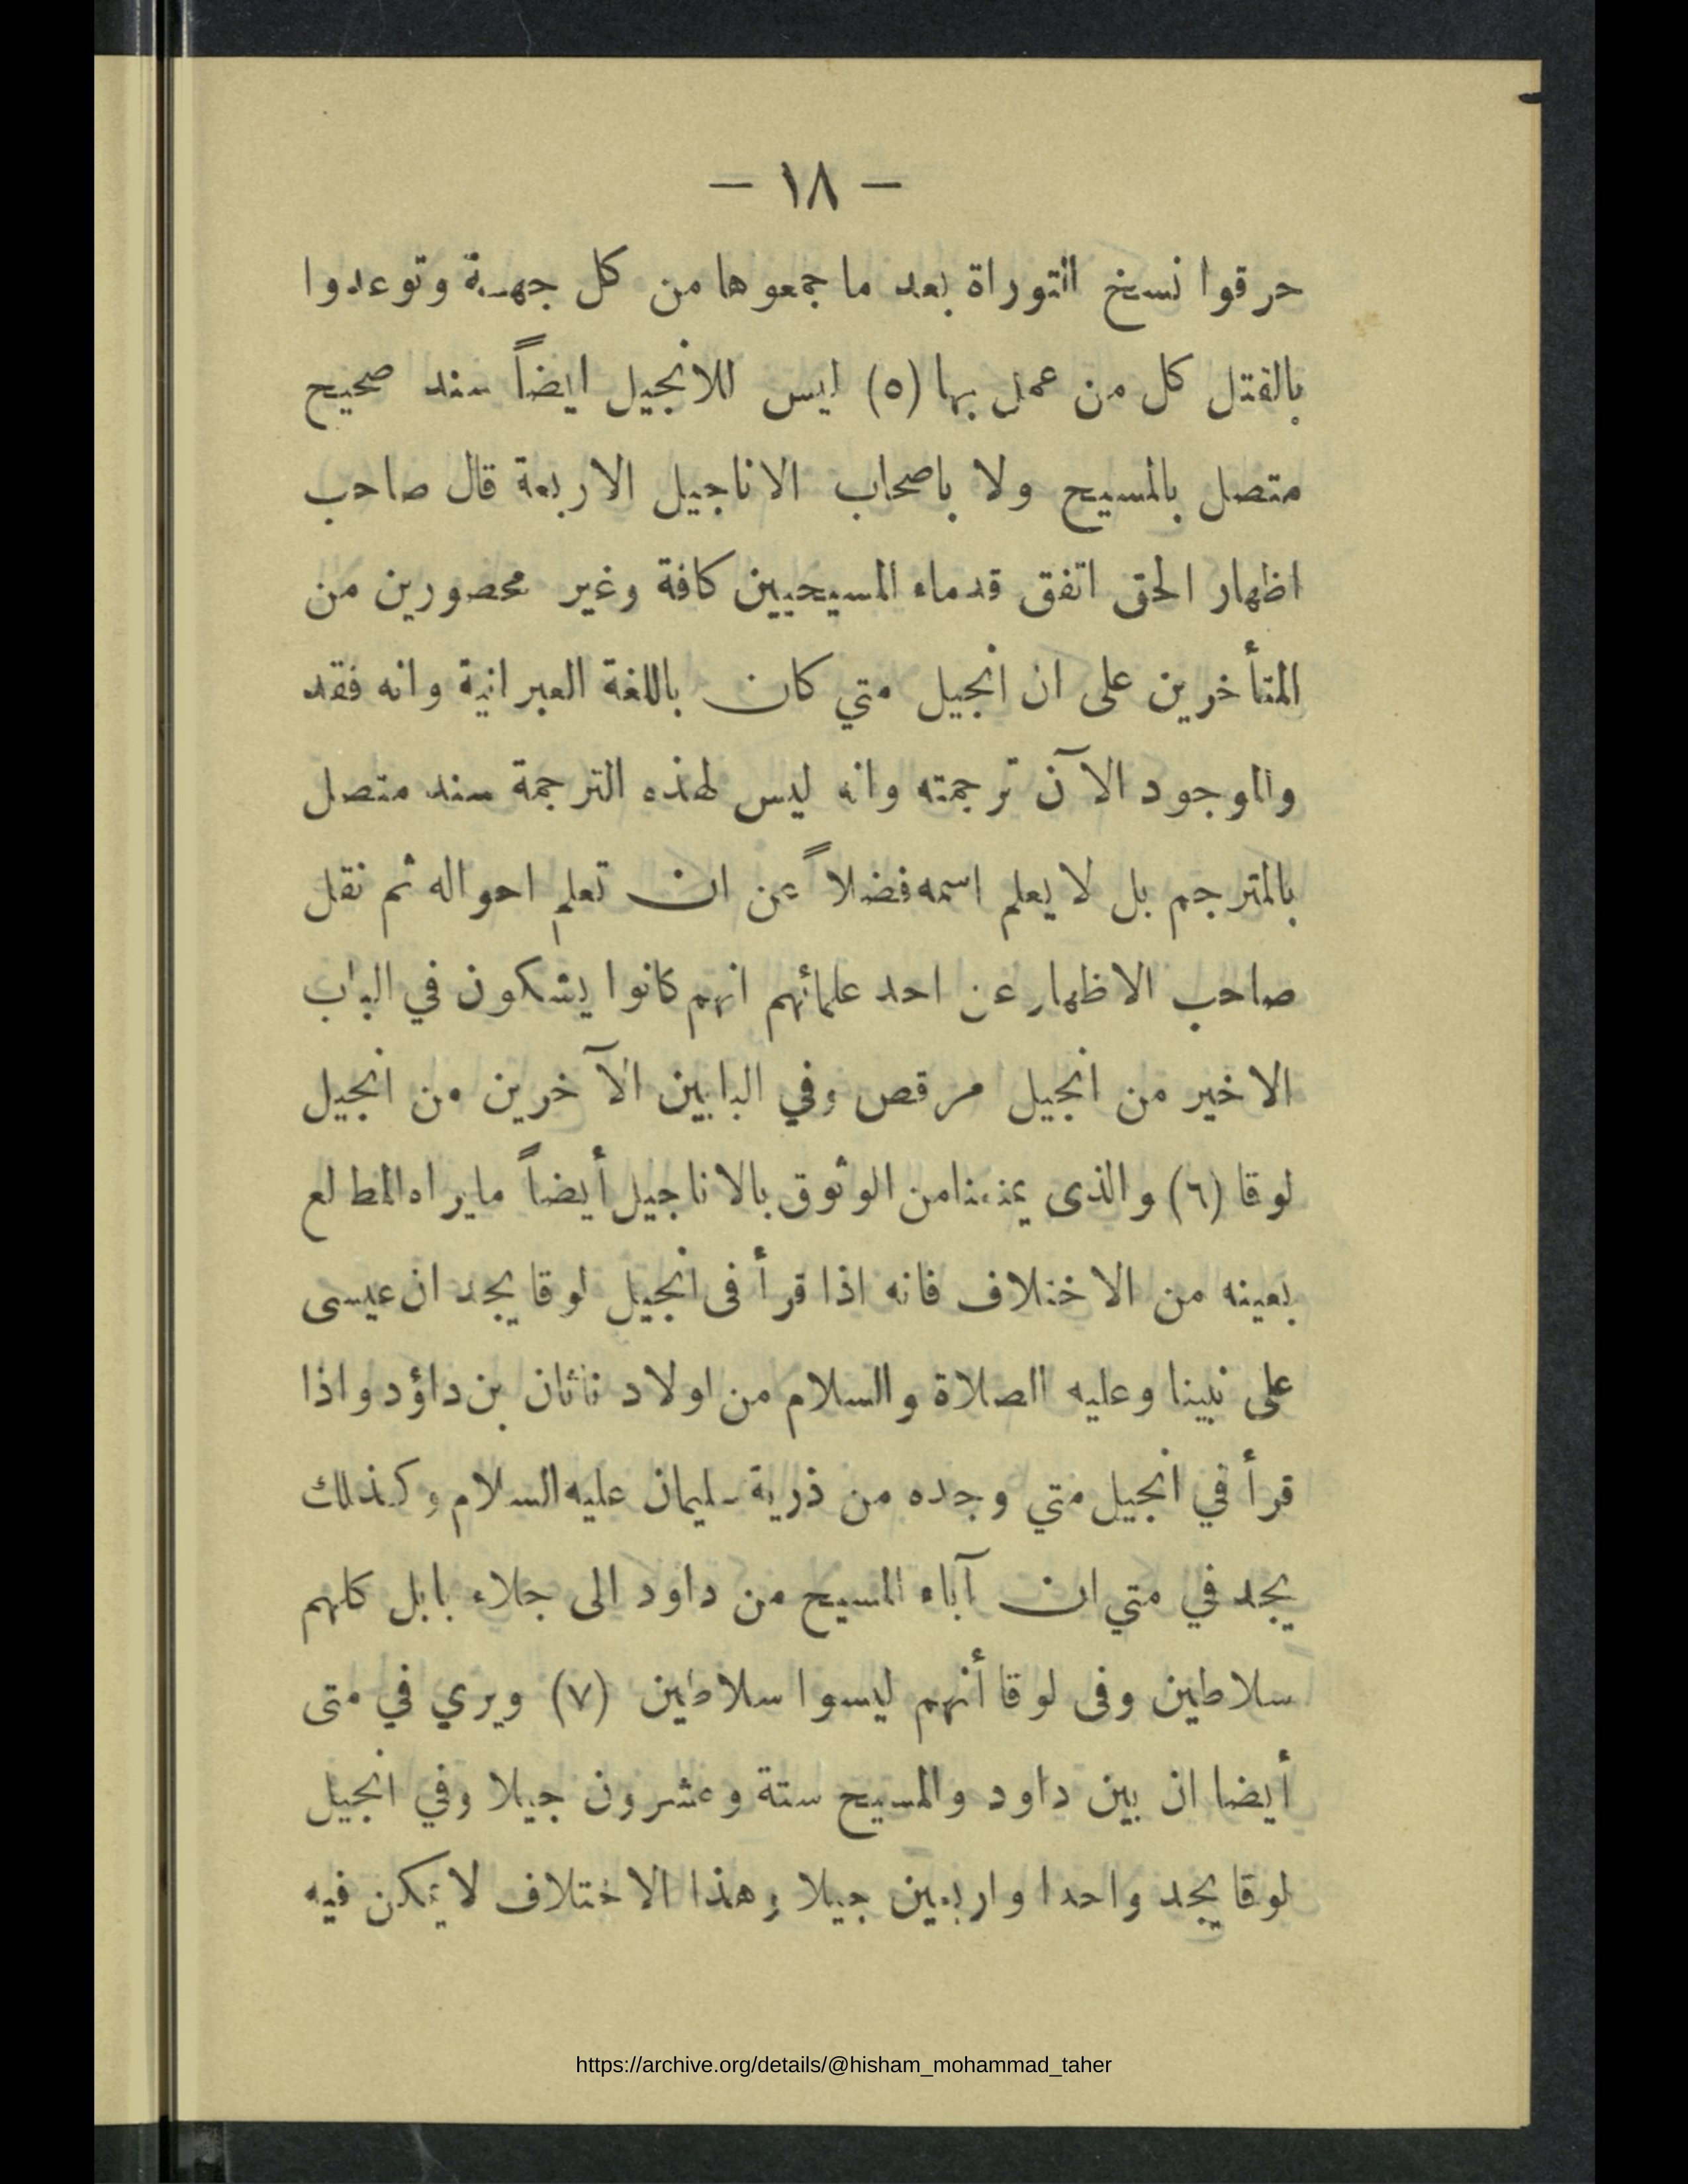 — ١٨ —
حرقوا نسخ التوراة بعد ما جمعوها من كل جهـة وتوعدوا
بالقتل كل من عمل بها (٥) ليس للانجيل ايضاً سند صحيح
متصل بالمسيح ولا باصحاب الاناجيل الاربعة قال صاحب
اظهار الحق اتفق قدماء المسيحيين كافة وغير محصورين من
المتأخرين على ان انجيل متي كان باللغة العبرانية وانه فقد
والموجود الآن ترجمته وانه ليس لهذه الترجمة سند متصل
بالمترجم بل لا يعلم اسمه فضلاً عن ان تعلم احواله ثم نقل
صاحب الاظهار عن احد علمائهم انهم كانوا يشكون في الباب
الاخير من انجيل مرقص وفي البابين الآخرين من انجيل
لوقا (٦) والذى يمنعنا من الوثوق بالاناجيل أيضاً ما يراه المطلع
بعينه من الاختلاف فانه اذا قرأ فى انجيل لوقا يجد ان عيسى
على نبينا وعليه الصلاة والسلام من اولاد ناثان بن داؤد واذا
قرأ في انجيل متي وجده من ذرية سليمان عليه السلام وكذلك
يجد في متي ان آباء المسيح من داود الى جلاء بابل كلهم
سلاطين وفى لوقا أنهم ليسوا سلاطين (٧) ويري في متى
أيضا ان بين داود والمسيح ستة وعشرون جيلا وفي انجيل
لوقا يجد واحدا واربعين جيلا وهذا الاختلاف لا يمكن فيه
https://archive.org/details/@hisham_mohammad_taher